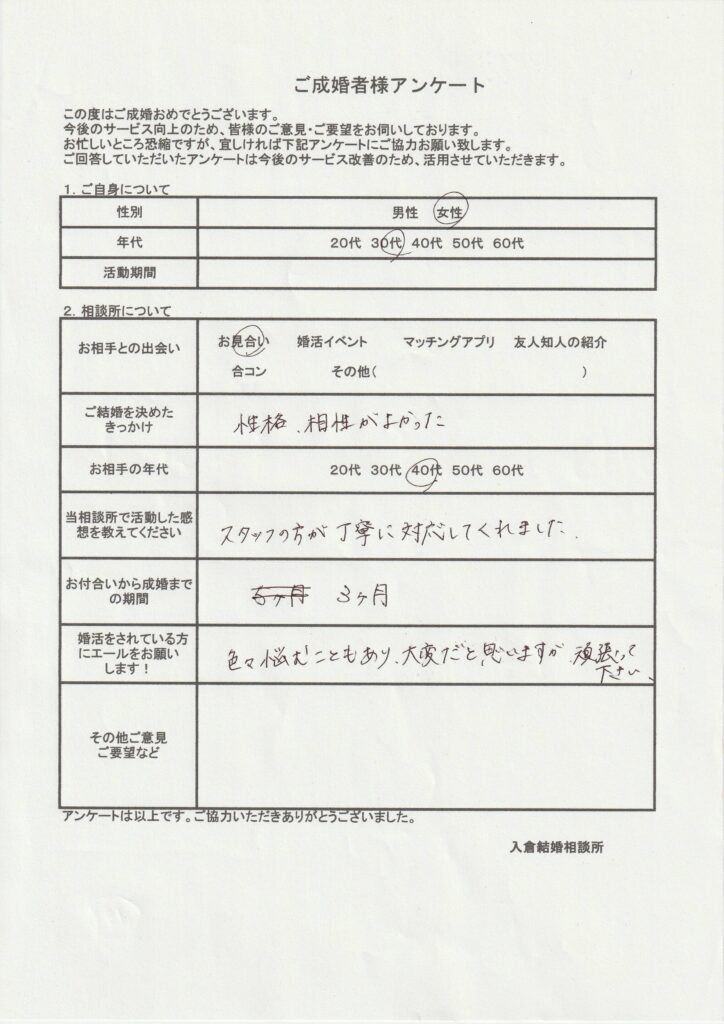 ご成婚者様アンケート
この度はご成婚おめでとうございます。
今後のサービス向上のため、皆様のご意見・ご要望をお伺いしております。
お忙しいところ恐縮ですが、宜しければ下記アンケートにご協力お願い致します。
ご回答していただいたアンケートは今後のサービス改善のため、活用させていただきます。
1. ご自身について
性別 男性 女性
年代 20代 30代 40代 50代 60代
活動期間
2. 相談所について
お相手との出会い
お見合い 婚活イベント マッチングアプリ 友人知人の紹介
合コン その他( )
ご結婚を決めた
きっかけ
性格、相性がよかった
お相手の年代 20代 30代 40代 50代 60代
当相談所で活動した感
想を教えてください
スタッフの方が丁寧に対応してくれました.
お付合いから成婚まで
の期間
5ヶ月 3ヶ月
婚活をされている方
にエールをお願い
します!
色々悩むこともあり、大変だと思いますが 頑張って
下さい。
その他ご意見
ご要望など
アンケートは以上です。ご協力いただきありがとうございました。
入倉結婚相談所